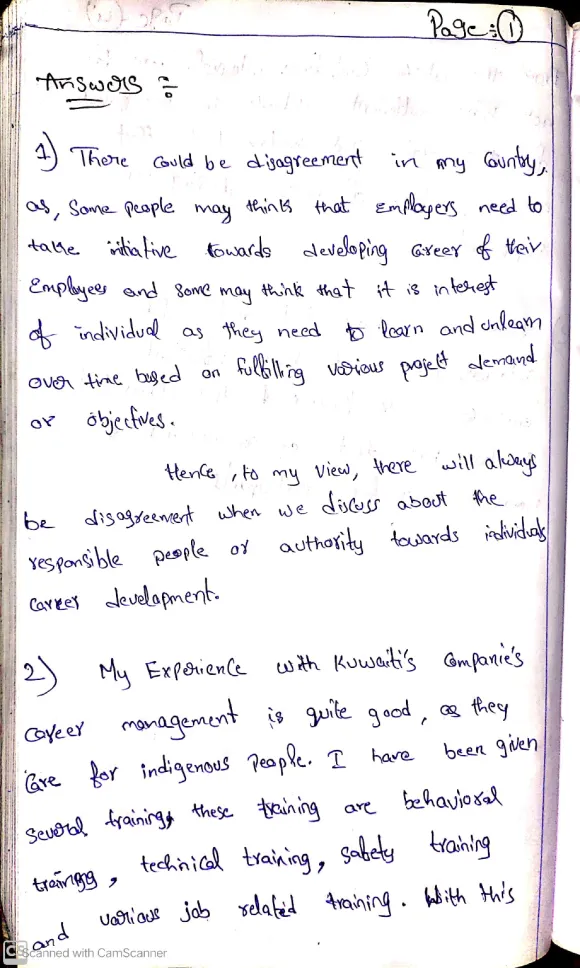 Page:①
Answers :
1) There could be disagreement in my Country,
as, Some people may think that Employers need to
take initiative towards developing Career of their
Employees and some may think that it is interest
of individual as they need to learn and unlearn
over time based on fulfilling various project demand
or objectives.
Hence, to my view, there will always
be disagreement when we discuss about the
responsible people or authority towards individuals
Career development.
2) My Experience with Kuwaiti's Companie's
Career management is quite good, as they
Care for indigenous People. I have been given
several trainings these training are behavioral
training, technical training, safety training
and various job related training. With this
CS Scanned with CamScanner